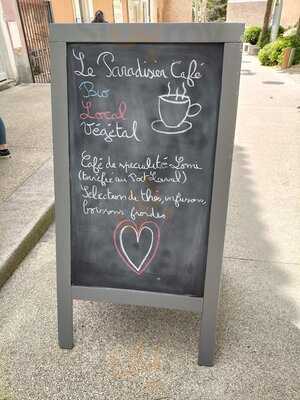 Le Paradisier Café
Bio
Local
Végétal
Café de spécialité Lomi
(torréfié au Pot Laval)
Sélection de thés, infusions,
boissons froides